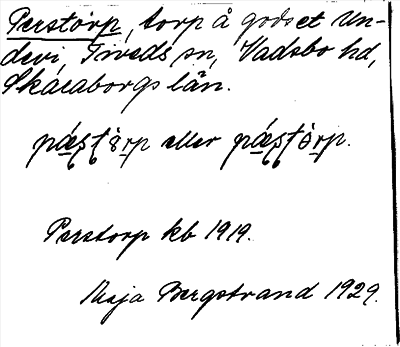 Perstorp, torp å godset Un-
devi, Tiveds sn, Vadsbo hd,
Skaraborgs län.
eller
Perstorp kb 1919.
Maja Bergstrand 1929.